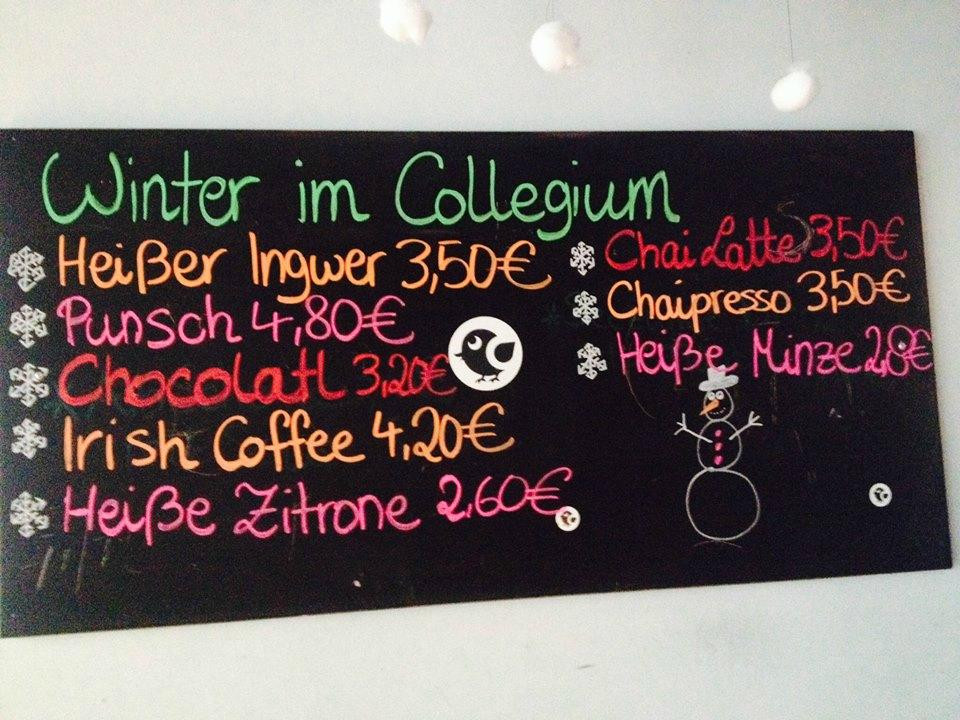 Winter im Collegium
Heißer Ingwer 3,50€
Punsch 4,80€
Chocolatl 3,20€
Irish Coffee 4,20€
Heiße Zitrone 2,60€
Chai Latte 3,50€
Chaipresso 3,50€
Heiße Minze 2,8€